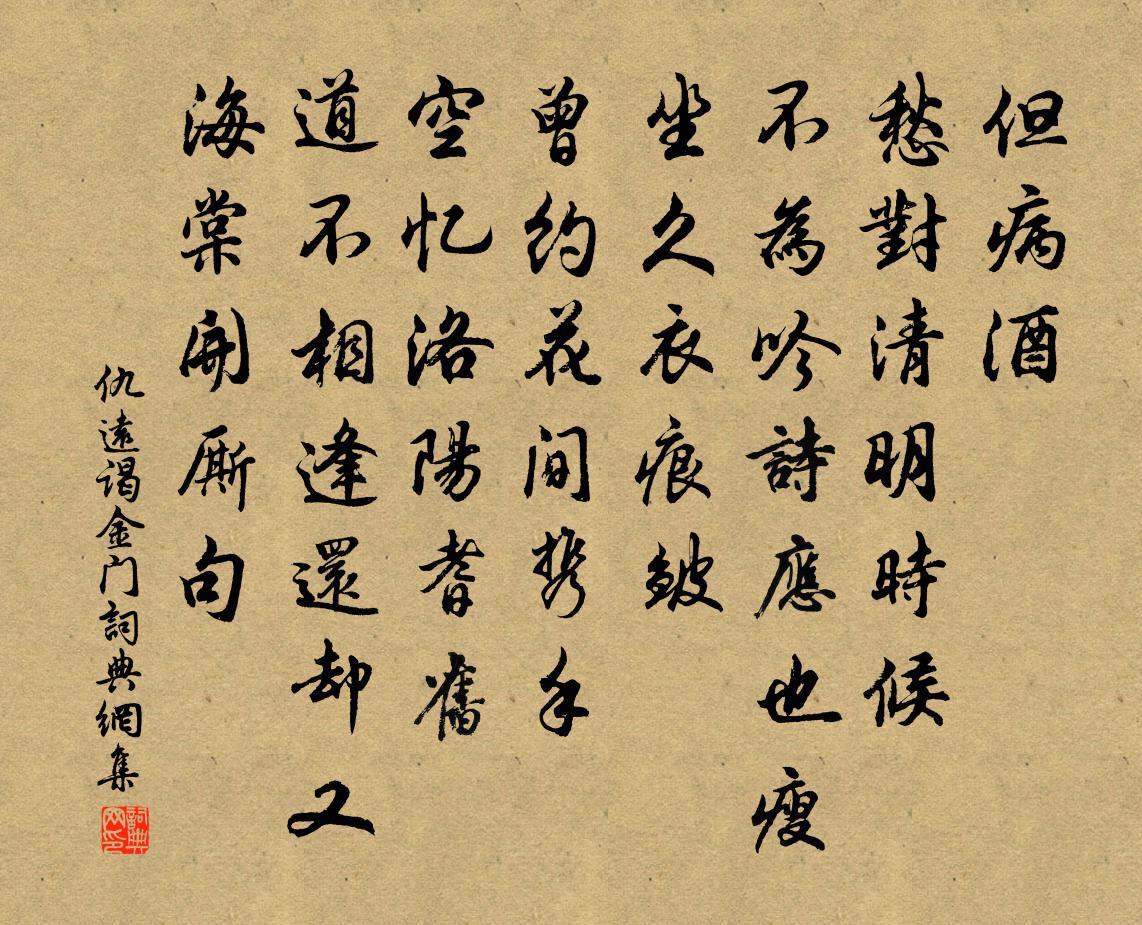 但病酒
愁對清明時候
不為吟詩應也瘦
坐久衣痕皺
曾約花間携手
空忆洛陽耆舊
道不相逢還却又
海棠開厮句
仇遠谒金门詞典網集
詞典网印